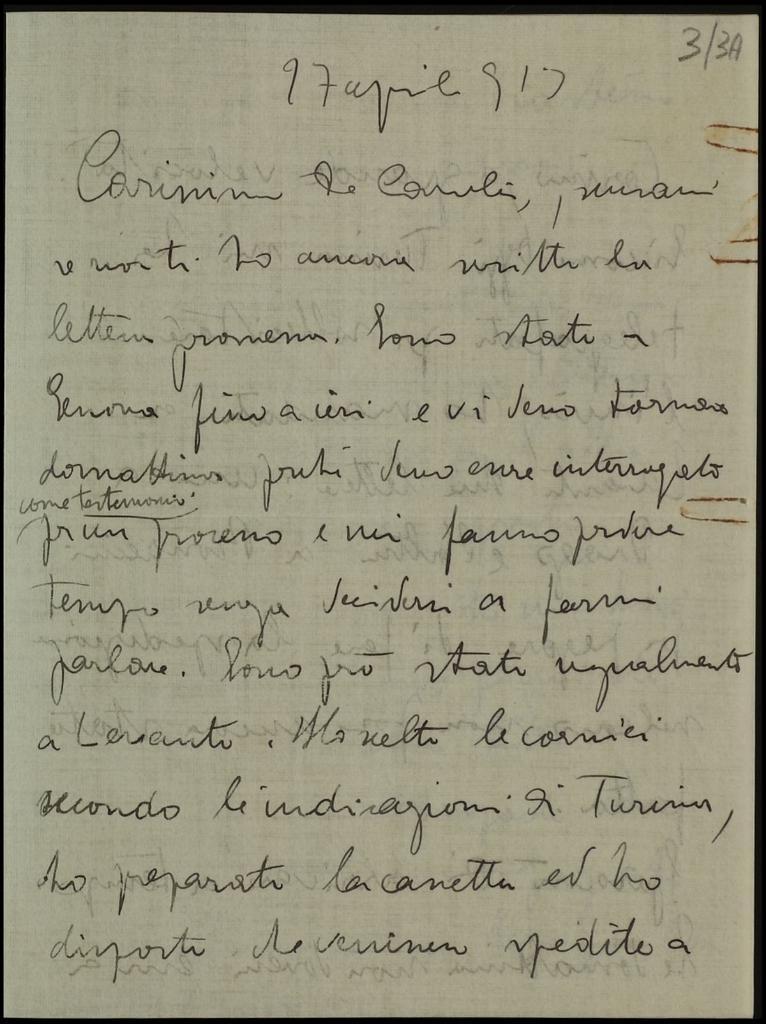 3/3A
27 aprile 917
Carissimo De Carolis, scusami
se non ti ho ancora scritto la
lettera promessa. Sono stato a
Genova fino a ieri e vi devo tornare
domattina perchè devo essere interrogato
come testimonio
per un processo e mi fanno perdere
tempo senza decidersi a farmi
parlare. Sono però stato ugualmente
a Levanto. Ho scelto le cornici
secondo le indicazioni di Turina,
ho preparato la cassetta ed ho
disposto che venissero spedite a